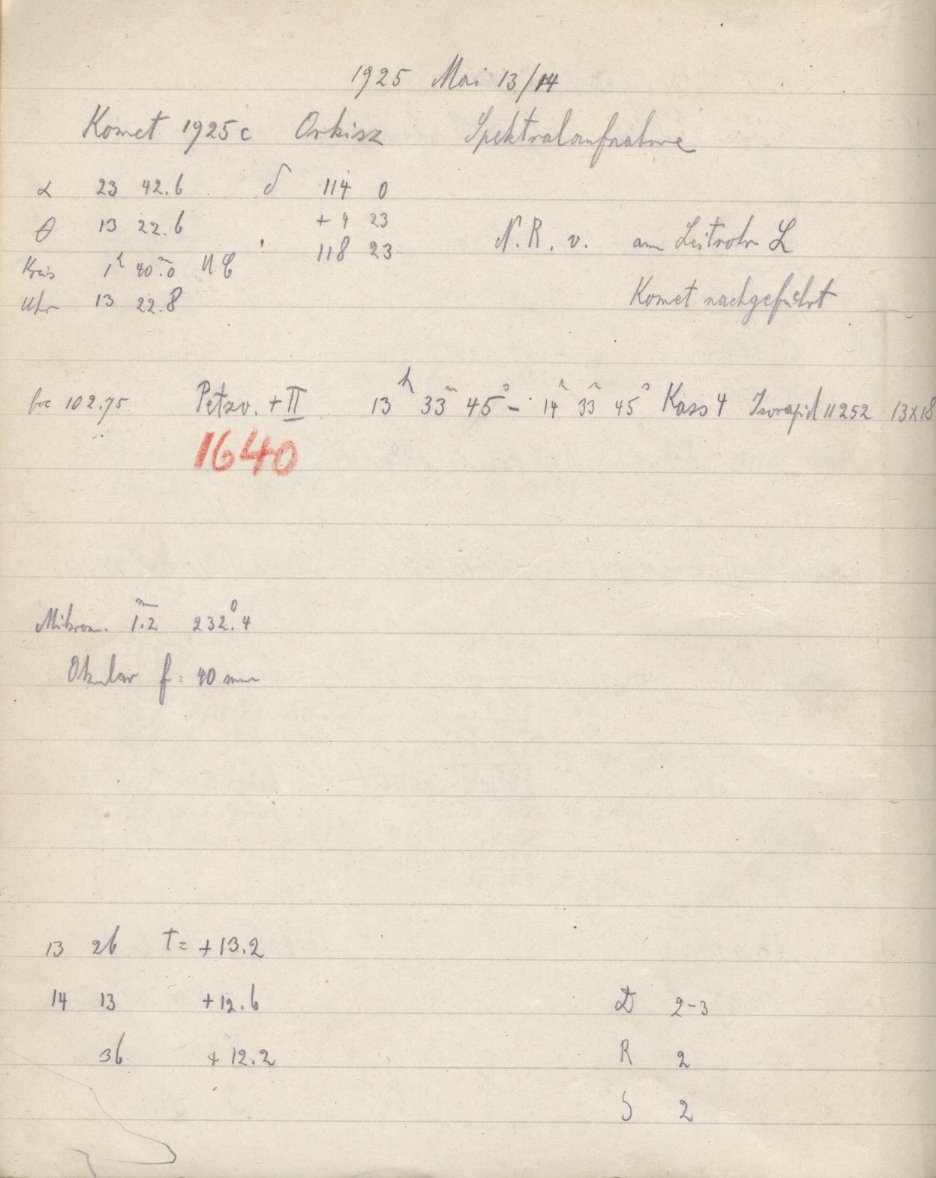 1925 Mai 13/14
Komet 1925c Orkisz Spektralaufnahme
α 23 42.6 δ 114 0
θ 13 22.6 + 4 23
118 23
N.R. v. am Leitrohr L
Kreis 1h 40m.0
Uhr 13 22.8
Komet nachgeführt
foc 102.75 Petzv. + II 13h 33m 45s – 14h 33m 45s Kass 4 Isorapid 11252 13x18
1640
Mikrom. 1m.2 232°.4
Okular f = 40 mm
13 26 T = +13.2
14 13 +12.6
36 +12.2
D 2-3
R 2
S 2